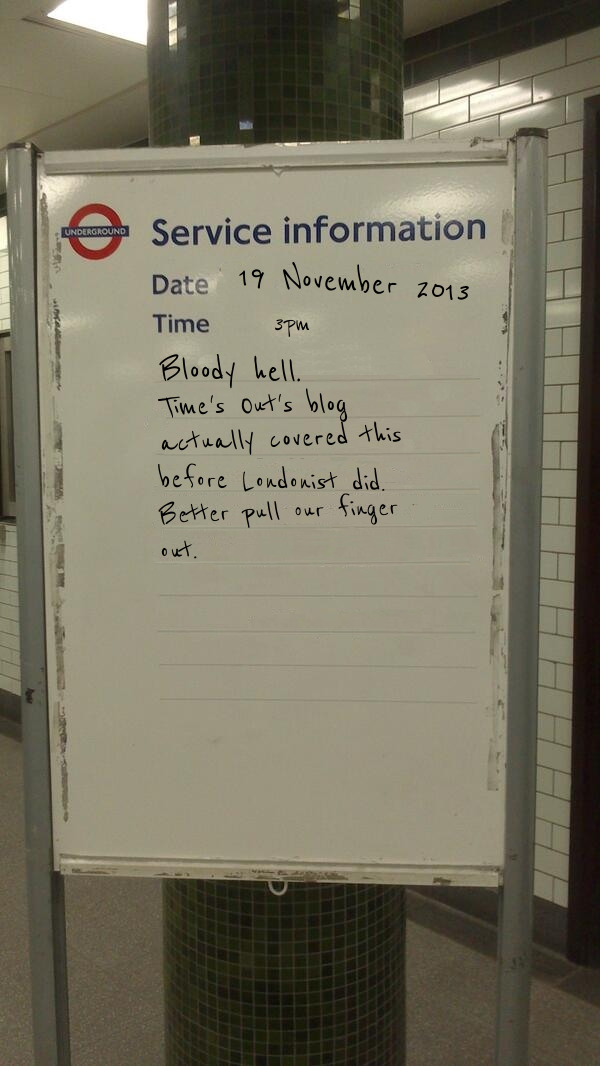 UNDERGROUND
Service information
Date 19 November 2013
Time 3pm
Bloody hell.
Time's Out's blog
actually covered this
before Londonist did.
Better pull our finger
out.